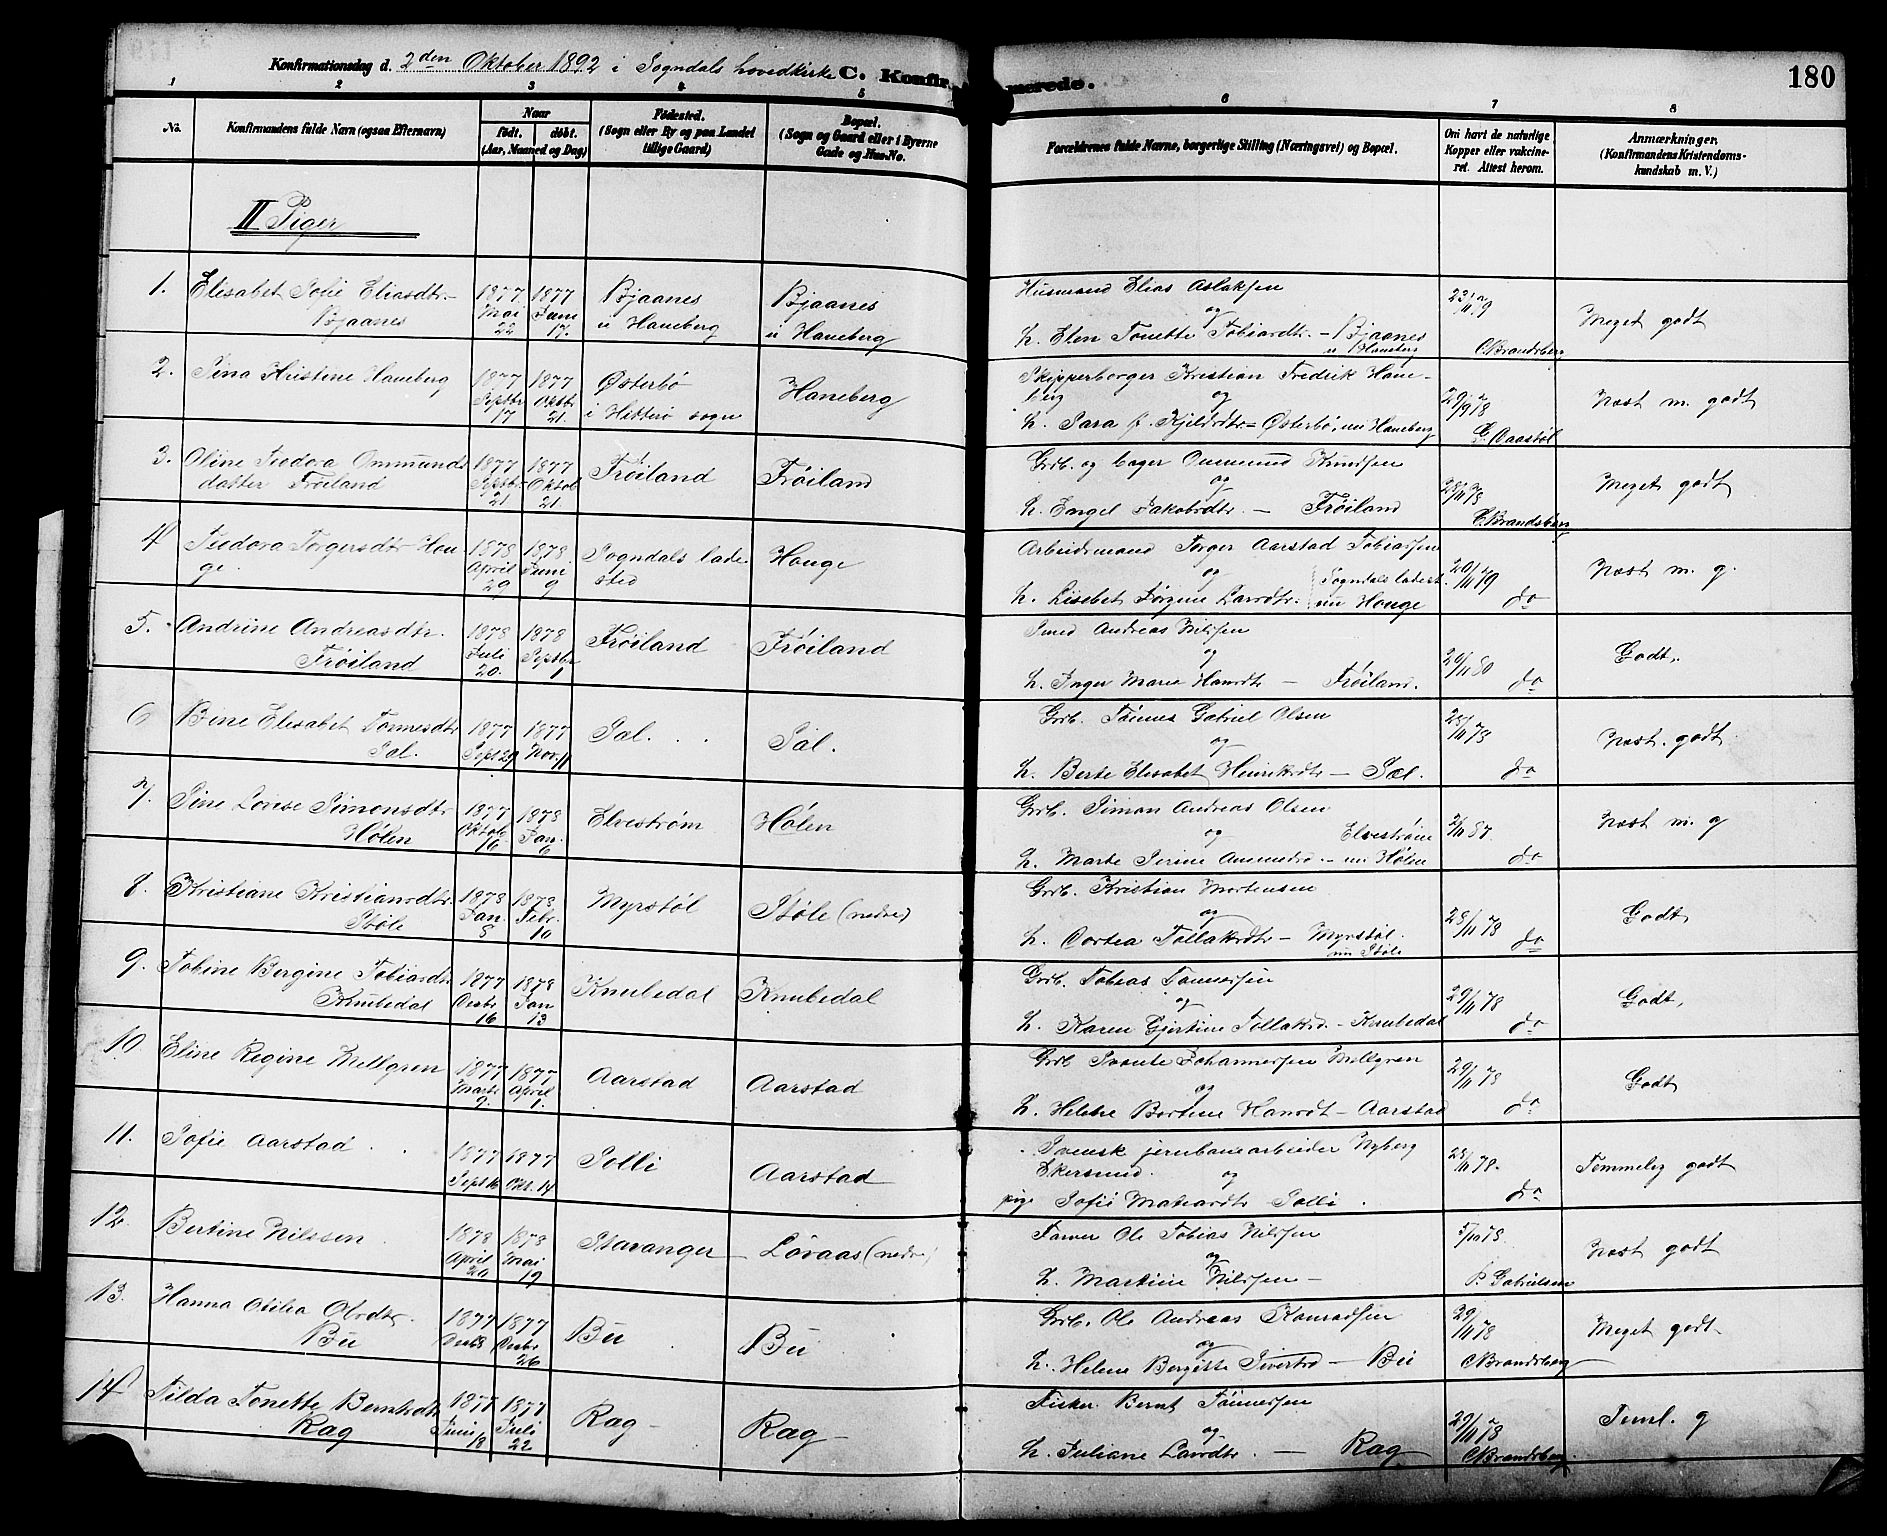 Konfirmationsdag d. 2den Oktober 1892 i Sogndals hovedkirke C. Konfirmerede. 180
1 2 3 4 5 6 7 8
No.
Konfirmandens fulde Navn (ogsaa Efternavn)
Naar
født. døbt.
(Aar, Maaned og Dag)
Fødested.
(Sogn eller By og paa Landet
tillige Gaard)
Bopæl.
(Sogn og Gaard eller i Byerne
Gade og Hus-No.
Forældrenes fulde Navne, borgerlige Stilling (Næringsvei) og Bopæl.
Om havt de naturlige
Kopper eller vakcine-
ret. Attest herom.
Anmærkninger.
(Konfirmandens Kristendoms-
kundskab m. V.)
II Piger
1. Elisabet Sofie Eliasdtr.
Bjaanes
1877 Mai 22
1877 Juni 17.
Bjaanes
u Haneberg
Bjaanes
u Haneberg
Husmand Elias Aslaksen
og
h. Elen Tonette Tobiasdtr. - Bjaanes
u Haneberg
C. Brandsberg
Meget godt
2. Sina Kristine Haneberg
1877 Septbr 17
1877 Oktbr 21.
Østerbø
i Hitterø sogn
Haneberg
Skipperborger Kristian Fredrik Hane-
berg og
h. Sara f. Kjeldsdtr - Østerbø, nu Haneberg
29/9 78
Næst m. godt
3. Oline Teodora Ommunds
datter Frøiland
1877 Septbr 21
1877 Oktob 21.
Frøiland
Frøiland
Grb. og Ommund Knudsen
og
h. Engel Jakobsdtr. - Frøiland
C. Brandsberg
Meget godt
4 Teodora Torgersdtr Hau-
ge.
1878 April 29
1878 Juni 9
Sogndals lade-
sted
Hauge
Arbeidsmand Torger Aarstad Tobiassen
og
h. Lisebet Jørgine Larsdtr. Sogndals ladest.
nu Hauge
20/11 79
do
Næst m. g.
5. Andrine Andreasdtr.
Frøiland
1878 Juli 20.
1878 Septbr 1
Frøiland
Frøiland
Smed Andreas Nilsen
og
h. Inger Marie Hansdtr - Frøiland.
20/11 80
do
Godt.
6 Bine Elisabet Tonnesdtr
Sal.
1877 Sept 29
1877 Nov. 11
Sal.
Sal.
Grb. Tønnes Gabriel Olsen
og
h. Berte Elisabet Henriksdtr - Sæl.
do
Næst. godt
7. Sine Lovise Simonsdtr
Hølen
1877 Oktob. 16
1878 Jan. 6
Elvestrøm
Hølen
Grb. Simon Andreas Olsen
og Elvestrøm
h. Marte Serine - nu Hølen
do
Næst m. g
8. Kristiane Kristiansdtr.
Støle
1878 Jan. 8
1878. Febr. 10
Myrstøl
Støle (nedre)
Grb. Kristian Mortensen
og
h. Tollaksdtr - Myrstøl.
nu Støle
28/11 78
do
Godt
9. Tobine Bergine Tobiasdtr
Knubedal
1877 Decbr 16
1878 Jan 13
Knubedal
Knubedal
Grb. Tobias Tønnessen
og
h. Karen Gjertine Tollaksd. - Knubedal
29/11 78
do
Godt.
10. Eline Regine Mellgren
1877 Marts 9.
1877 April 1.
Aarstad
Aarstad
Grb Svante Johannessen Mellgren
og
h. Helene Bertine Hansdt - Aarstad
29/11 78
do
Godt
11. Sofie Aarstad
1877 Sept 16
1877 Okt. 14
Solli
Aarstad
Svensk jernbanearbeider Nyberg
Ekersund. og
pige Sofie Matiasdtr Solli.
28/11 78.
do
Temmelig godt
12. Bertine Nilssen
1878 April 20
1878 Mai 19
Stavanger
Løvaas (nedre)
Farver Ole Tobias Nilsen
og
h. Martine Nilssen -
5/10 78.
P. Gabrielsen
Næst godt
13. Hanna Otilia Olsdtr.
Bu
1877 Decbr 8
1877 Decbr 26
Bu
Bu
Grb. Ole Andreas Konradsen
og
h. Helene Bergitte Sivertsd - Bu
29/11 78
C. Brandsberg
Meget godt
14 Tilda Tonette Berntsdtr
Rag
1877 Juni 18
1877 Juli 22
Rag
Rag
Fisker Bernt Tønnessen
og
h. Juliane Larsdtr. - Rag
29/11 78
C. Brandsberg.
Teml. g